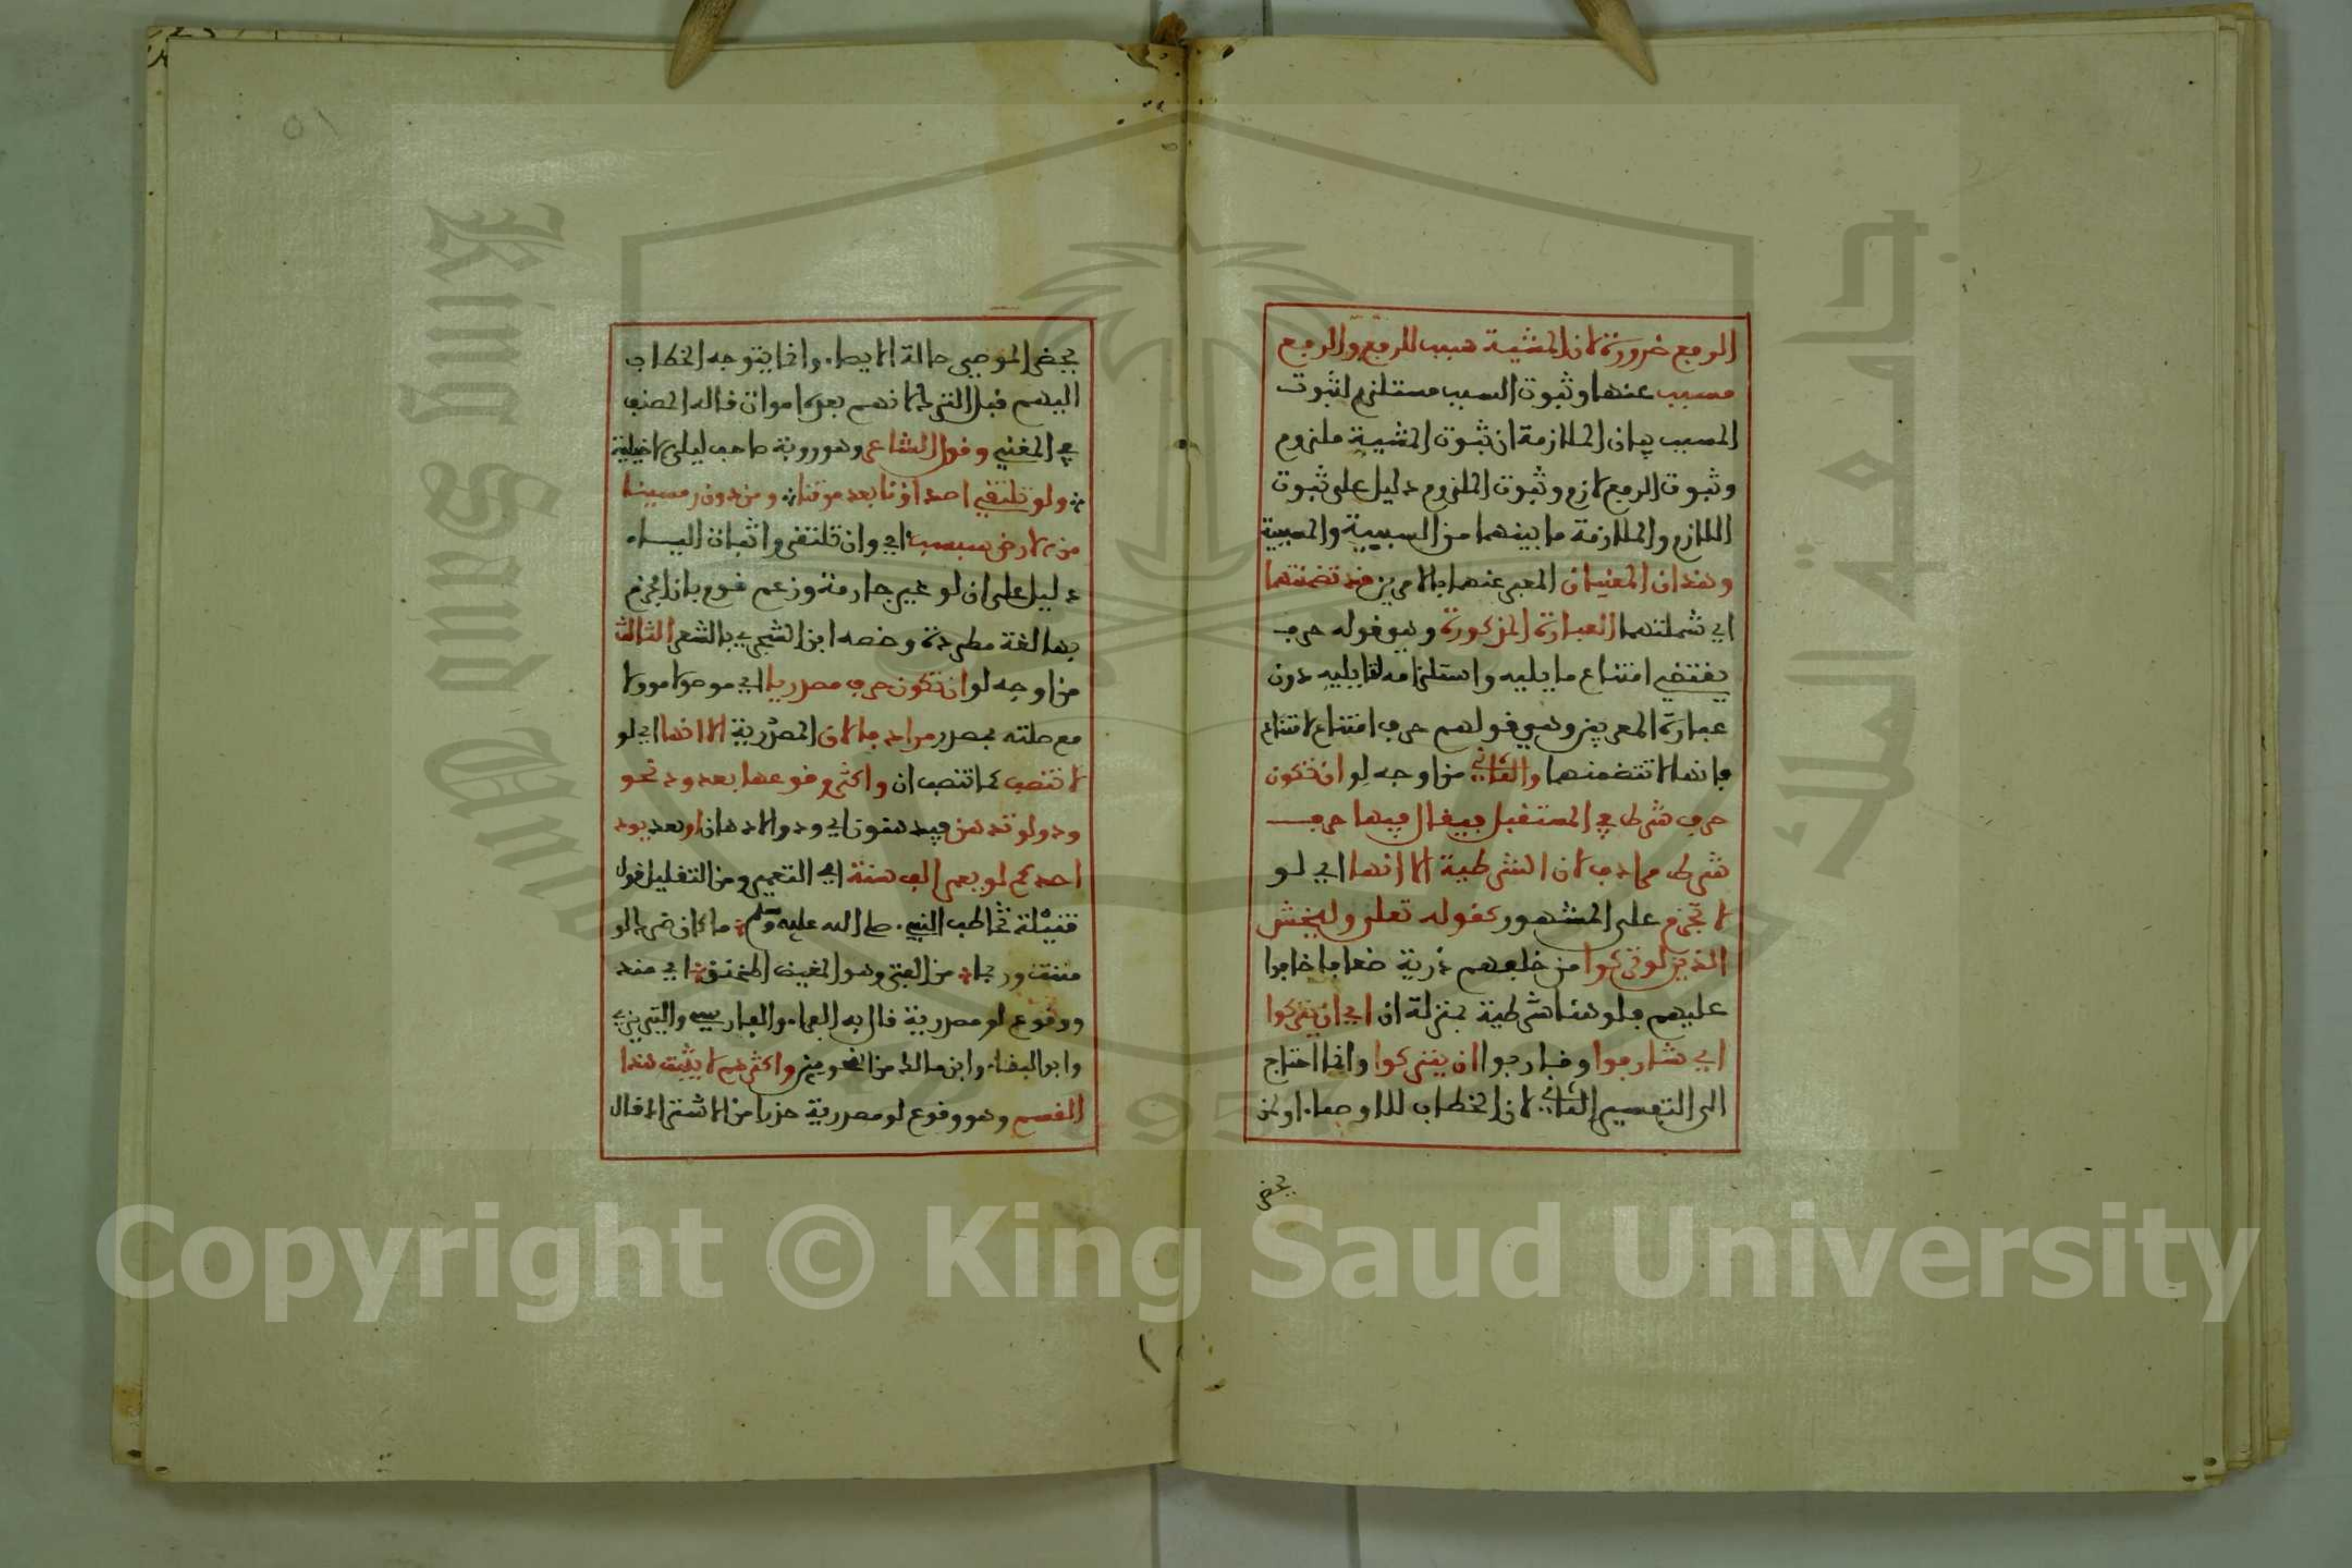 الرفع ضرورة لان المشيية سبب للرفع والرفع
مسبب عنها وثبوت السبب مستلزم لثبوت
المسبب بيان الملازمة ان ثبوت المشيية ملزوم
وثبوت الرفع لازم وثبوت الملزوم دليل على ثبوت
اللازم والملازمة ما بينهما من السببية والمسببية
وهذان المعنيان المعبر عنهما بالامرين قد تضمنتهما
اي شملتهما العبارة المذكورة وهو قوله حرف
يقتضي امتناع ما يليه واستلزامه لتاليه دون
عبارة المعربين وهي قولهم حرف امتناع لامتناع
فانها لا تتضمنهما والثاني من اوجه لو ان تكون
حرف شرط في المستقبل فيقال فيها حرف
شرط مرادف لان الشرطية الا انها اي لو
لا تجزم على المشهور كقوله تعلى وليخش
الذين لو تركوا من خلفهم ذرية ضعافا خافوا
عليهم فلو هنا شرطية بمنزلة ان اي ان يتركوا
اي شارفوا وقاربوا ان يتركوا وانما احتاج
الى التفسير الثاني لان الخطاب للاوصياء او لمن
يحضر
٥١
يحضر الموصي حالة الايصاء وانما يتوجه الخطاب
اليهم قبل الترك لانهم بعده اموات قاله المصنف
في المغني وقول الشاعر وهو روبة صاحب ليلى الاخيلية
ولو تلتقي اصداؤنا بعد موتنا ومن دون رمسينا
من الارض سبسب اي وان تلتقي واثبات الياء
دليل على ان لو غير جازمة وزعم قوم بان الجزم
بها لغة مطردة وخصه ابن الشجري بالشعر الثالث
من اوجه لو ان تكون حرف مصدريا اي موصولا مؤولا
مع صلته بمصدر مرادفا لان المصدرية الا انها اي لو
لا تنصب كما تنصب ان واكثر وقوعها بعد ود نحو
ودوا لو تدهن فيدهنون اي ودوا الادهان او بعد يود
احدهم لو يعمر الف سنة اي التعمير ومن القليل قول
قتيلة تخاطب النبي صلى الله عليه وسلم ما كان ضرك لو
مننت وربما من الفتى وهو المغيظ المحنق اي منك
ووقوع لو مصدرية قال به الفراء والفارسي والتبريزي
وابو البقاء وابن مالك من النحويين واكثرهم لا يثبت هذا
القسم وهو وقوع لو مصدرية حذرا من الاشتراك قال
Copyright © King Saud University
King Saud University
1957